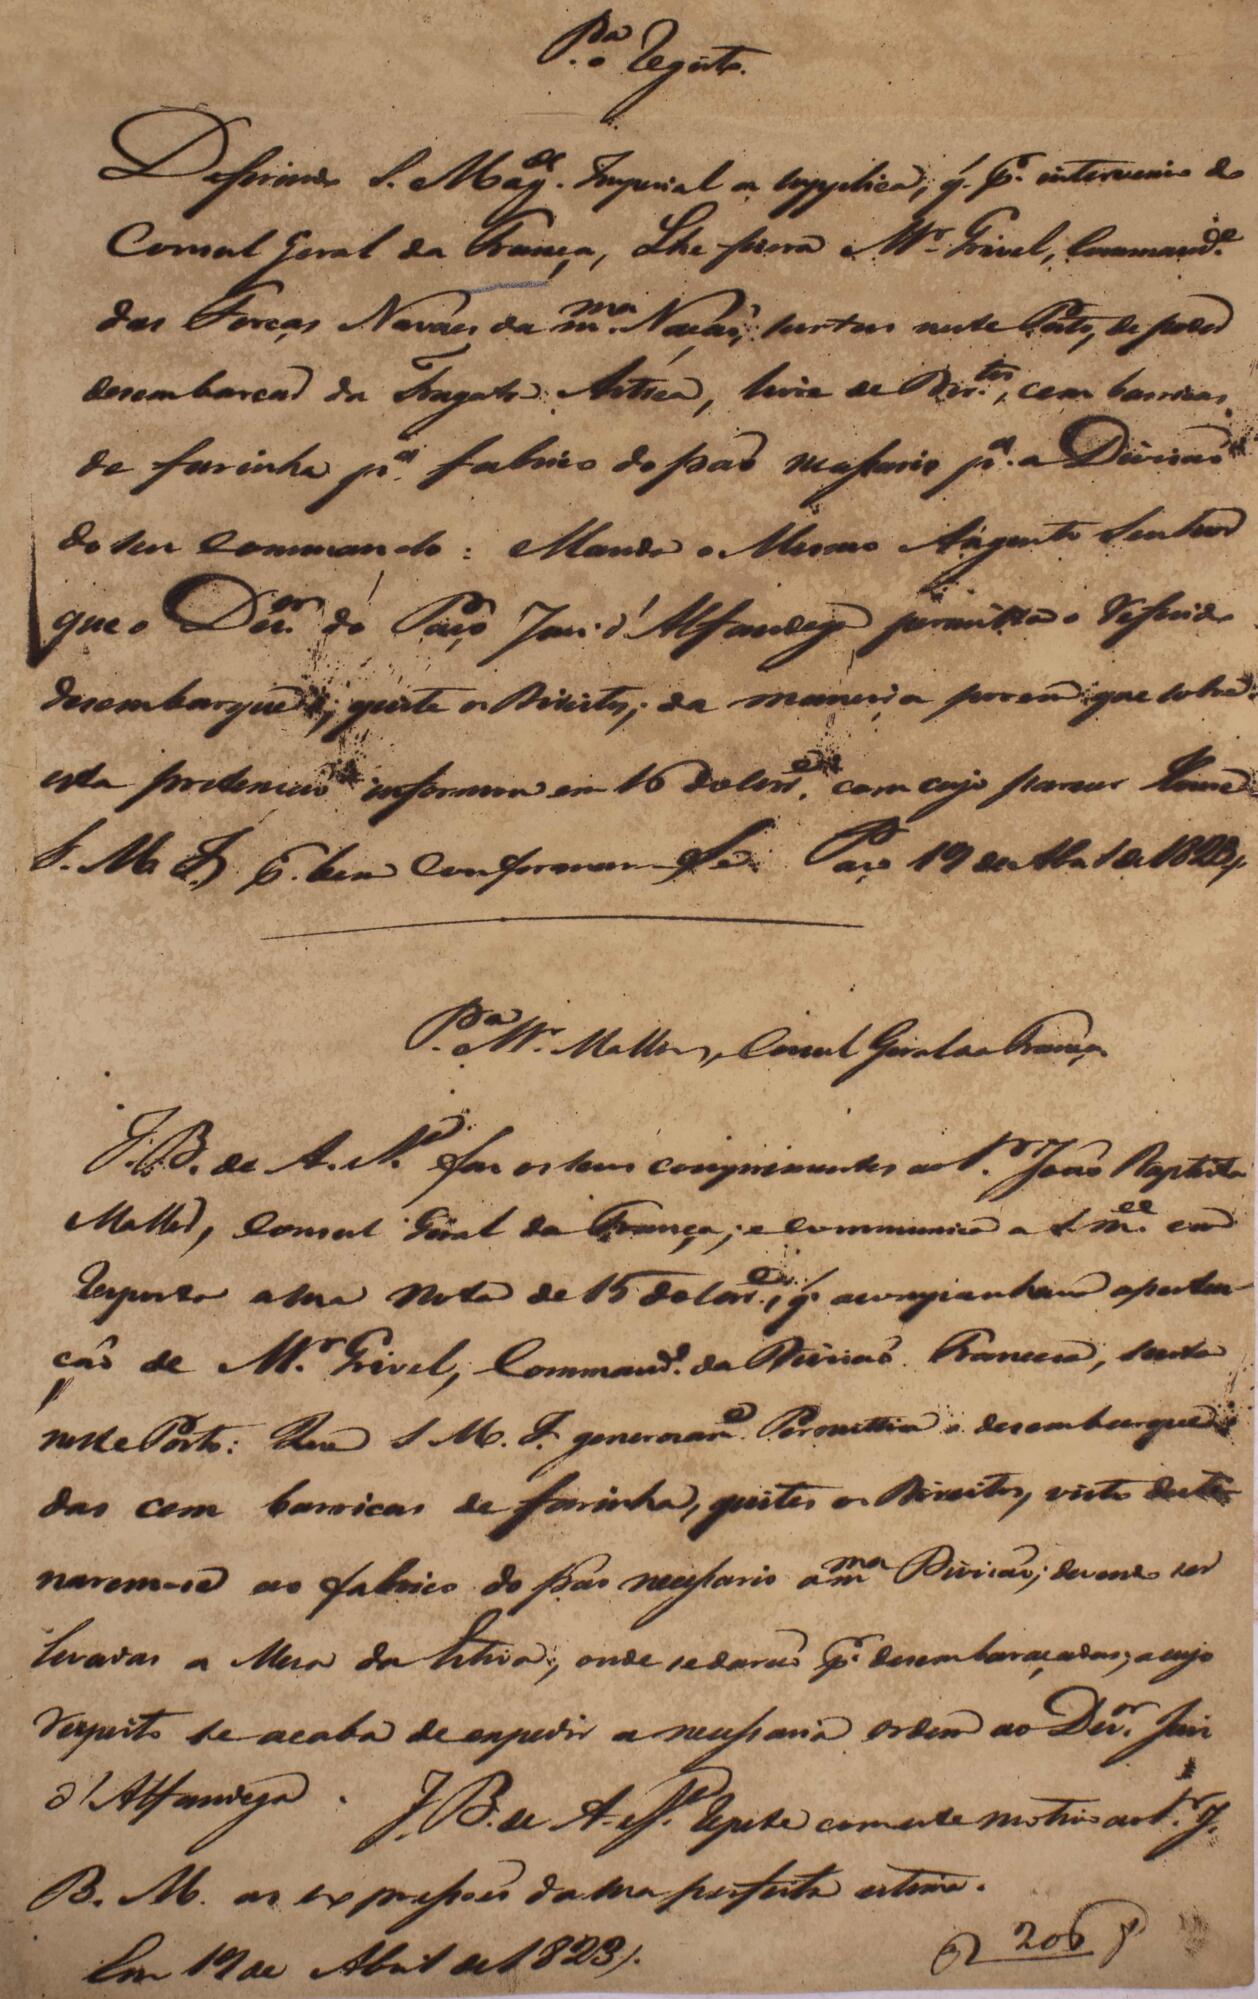 P.ª o Registo.
Deferindo S. Mag.de Imperial a supplica, q. p.r intervenio do
Consul Geral da França, Lhe fizera Mr. Grivel, Command.e
das Forças Navaes da m.ma Nação, surtas neste Porto, de poder
desembarcar da Fragata Astrea, livre de Dir.tos, cem barricas
de farinha p.a fabrico do pão necessario p.a a Divisão
do seu Commando: Manda o Mesmo Augusto Senhor
que o Dez.or do Paço Juiz d'Alfandega permitta o referido
desembarque, quite os Direitos, da maneira porem que sobre
esta pretenção informou em 16 do corr.e, com cujo parecer Houve
S. M. I. p. bem Conformar-Se. Paço 19 de Abril de 1823.
P.ª Mr. Maller, Consul Geral da França
J. B. de A. P.e faz os seus comprimentos ao S.r João Baptista
Maller, Consul Geral da França, e communica a S. m.ce em
resposta a sua Nota de 15 do corr.e, q. acompanhava a perten-
ção de Mr. Grivel, Command.e da Divisão Franceza, surta
neste Porto: Que S. M. I. generosam.e Permittira o desembarque
das cem barricas de farinha, quites os Direitos, visto desti-
narem-se ao fabrico do pão necessario a m.ma Divisão; devendo ser
levadas a Mesa da Estiva, onde se darão p.r desembaraçadas; a cujo
respeito se acaba de expedir a necessaria ordem ao Dez.or Juiz
d'Alfandega. J. B. de A. P.e repete com este motivo ao S.r J.
B. M. as expressões da sua perfeita estima.
Em 19 de Abril de 1823.
206